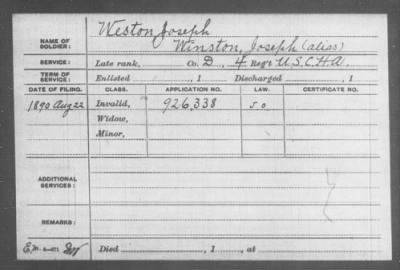 NAME OF SOLDIER: Weston, Joseph
Winston, Joseph (alias)
SERVICE: Late rank, Co. D, 4 Reg't U.S.C.H.A.
TERM OF SERVICE: Enlisted , 1 Discharged , 1
DATE OF FILING. CLASS. APPLICATION NO. LAW. CERTIFICATE NO.
1890 Aug 22 Invalid, 926,338
Widow,
Minor,
ADDITIONAL SERVICES:
REMARKS:
Died , 1 , at